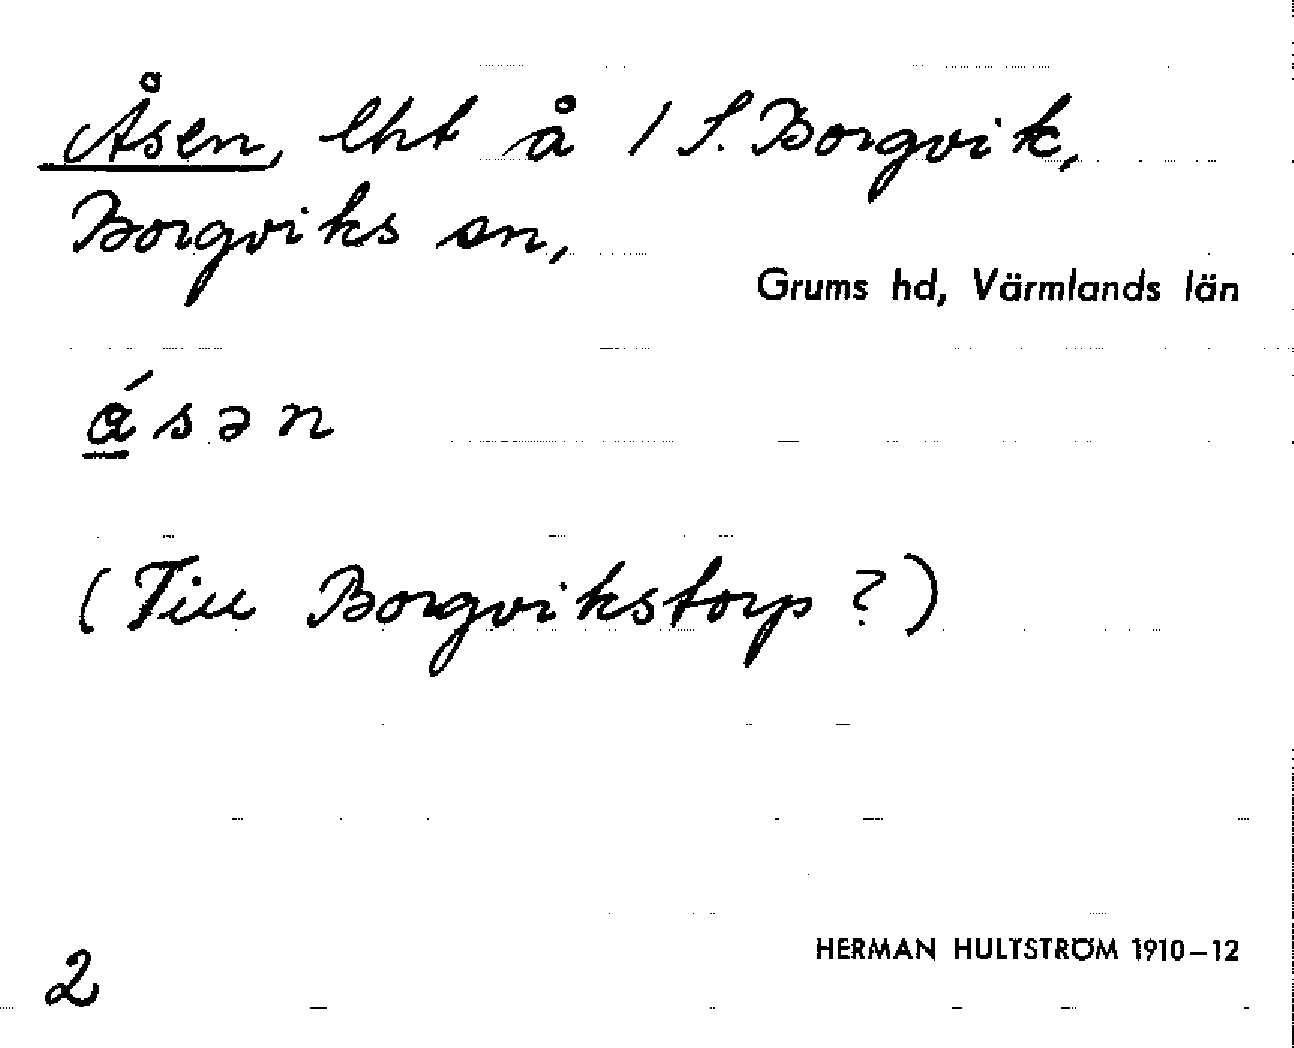 Åsen, lht å 1 S. Borgvik,
Borgviks sn,
Grums hd, Värmlands län
ásən
(Till Borgvikstorp ?)
HERMAN HULTSTRÖM 1910–12
2